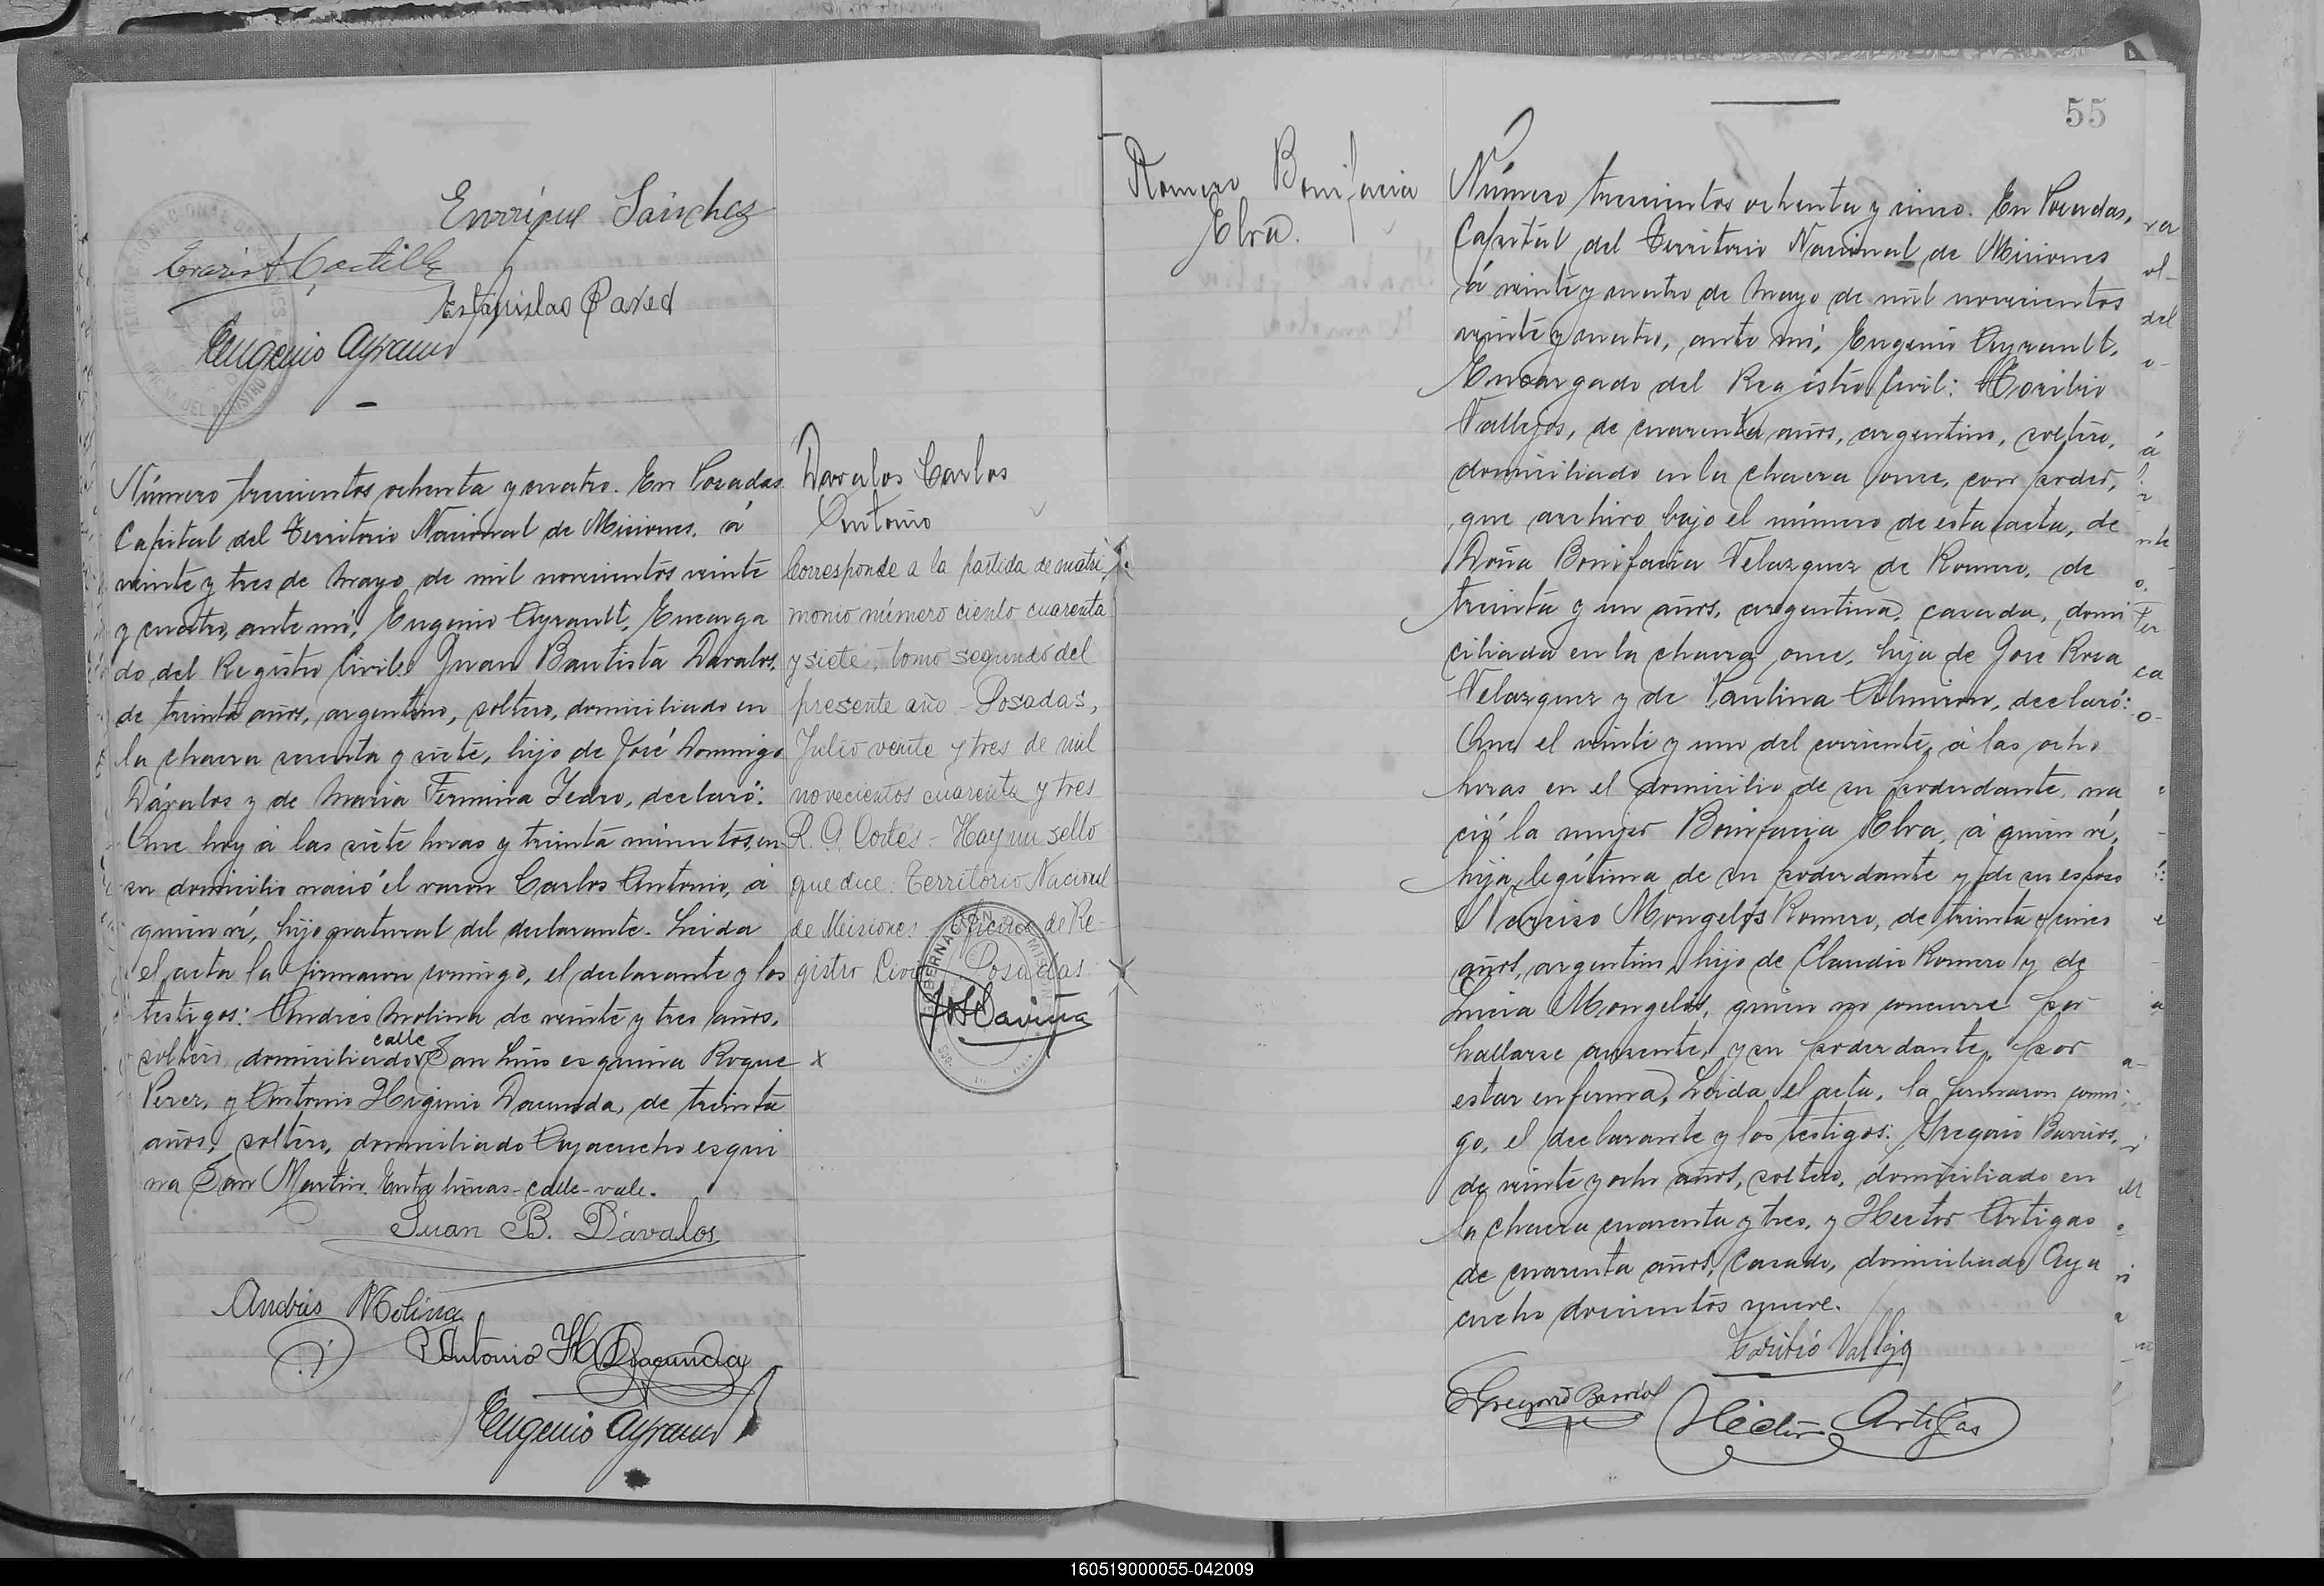 Enrique Sánchez
Evarist Castilla
Estanislao Pared
Eugenio Ayrault
Número trescientos ochenta y cuatro. En Posadas
Capital del Territorio Nacional de Misiones, á
veinte y tres de Mayo de mil novecientos veinte
y cuatro, ante mí, Eugenio Ayrault, Encarga
do del Registro Civil: Juan Bautista Davalos,
de treinta años, argentino, soltero, domiciliado en
la chacra sesenta y siete, hijo de José Domingo
Dávalos y de Maria Fermina Ledro, declaró:
Que hoy á las siete horas y treinta minutos, en
su domicilio nació el varon Carlos Antonio, á
quien ví, hijo natural del declarante. Leida
el acta la firmaron conmigo, el declarante y los
testigos: Andres Molina de veinte y tres años,
calle
soltero, domiciliado San Luis esquina Roque x
Perez, y Antonio Higinio Dacunda, de treinta
años, soltero, domiciliado Ayacucho esqui
na San Martin. Entre lineas-calle-vale.
Juan B. Dávalos
Andrés Molina
Antonio H Dacunda
Eugenio Ayrault
Davalos Carlos
Antonio
Corresponde a la partida de matri-
monio número ciento cuarenta
y siete, tomo segundo del
presente año - Posadas,
Julio veinte y tres de mil
novecientos cuarenta y tres
R. O. Cortés - Hay un sello
que dice: Territorio Nacional
de Misiones - Oficina de Re-
gistro Civil Posadas
55
Romero Bonifacia
Elva.
Número trescientos ochenta y cinco. En Posadas,
Capital del Territorio Nacional de Misiones
á veinte y cuatro de Mayo de mil novecientos
veinte y cuatro, ante mí, Eugenio Ayrault,
Encargado del Registro Civil: Toribio
Vallejos, de cuarenta años, argentino, soltero,
domiciliado en la chacra once, con poder,
que archivo bajo el número de esta acta, de
Doña Bonifacia Velazquez de Romero, de
treinta y un años, argentina, casada, domi
ciliada en la chacra once, hija de Jose Rosa
Velazquez y de Paulina Almiron, declaró:
Que el veinte y uno del corriente, á las ocho
horas en el domicilio de su poderdante, na
ció la mujer Bonifacia Elva, á quien ví,
hija legítima de su poderdante y de su esposo
Narciso Mongelós Romero, de treinta y cinco
años, argentino, hijo de Claudio Romero y de
Lucia Mongelós, quien no concurre por
hallarse ausente, y su poderdante, por
estar enferma, Leida el acta, la firmaron conmi
go, el declarante y los testigos: Gregorio Barrios,
de veinte y ocho años, soltero, domiciliado en
la chacra cuarenta y tres, y Hector Artigas
de cuarenta años, casado, domiciliado Aya
cucho doscientos nueve.
Toribió Vallejo
Gregorio Barrios
Héctor Artigas
160519000055-042009